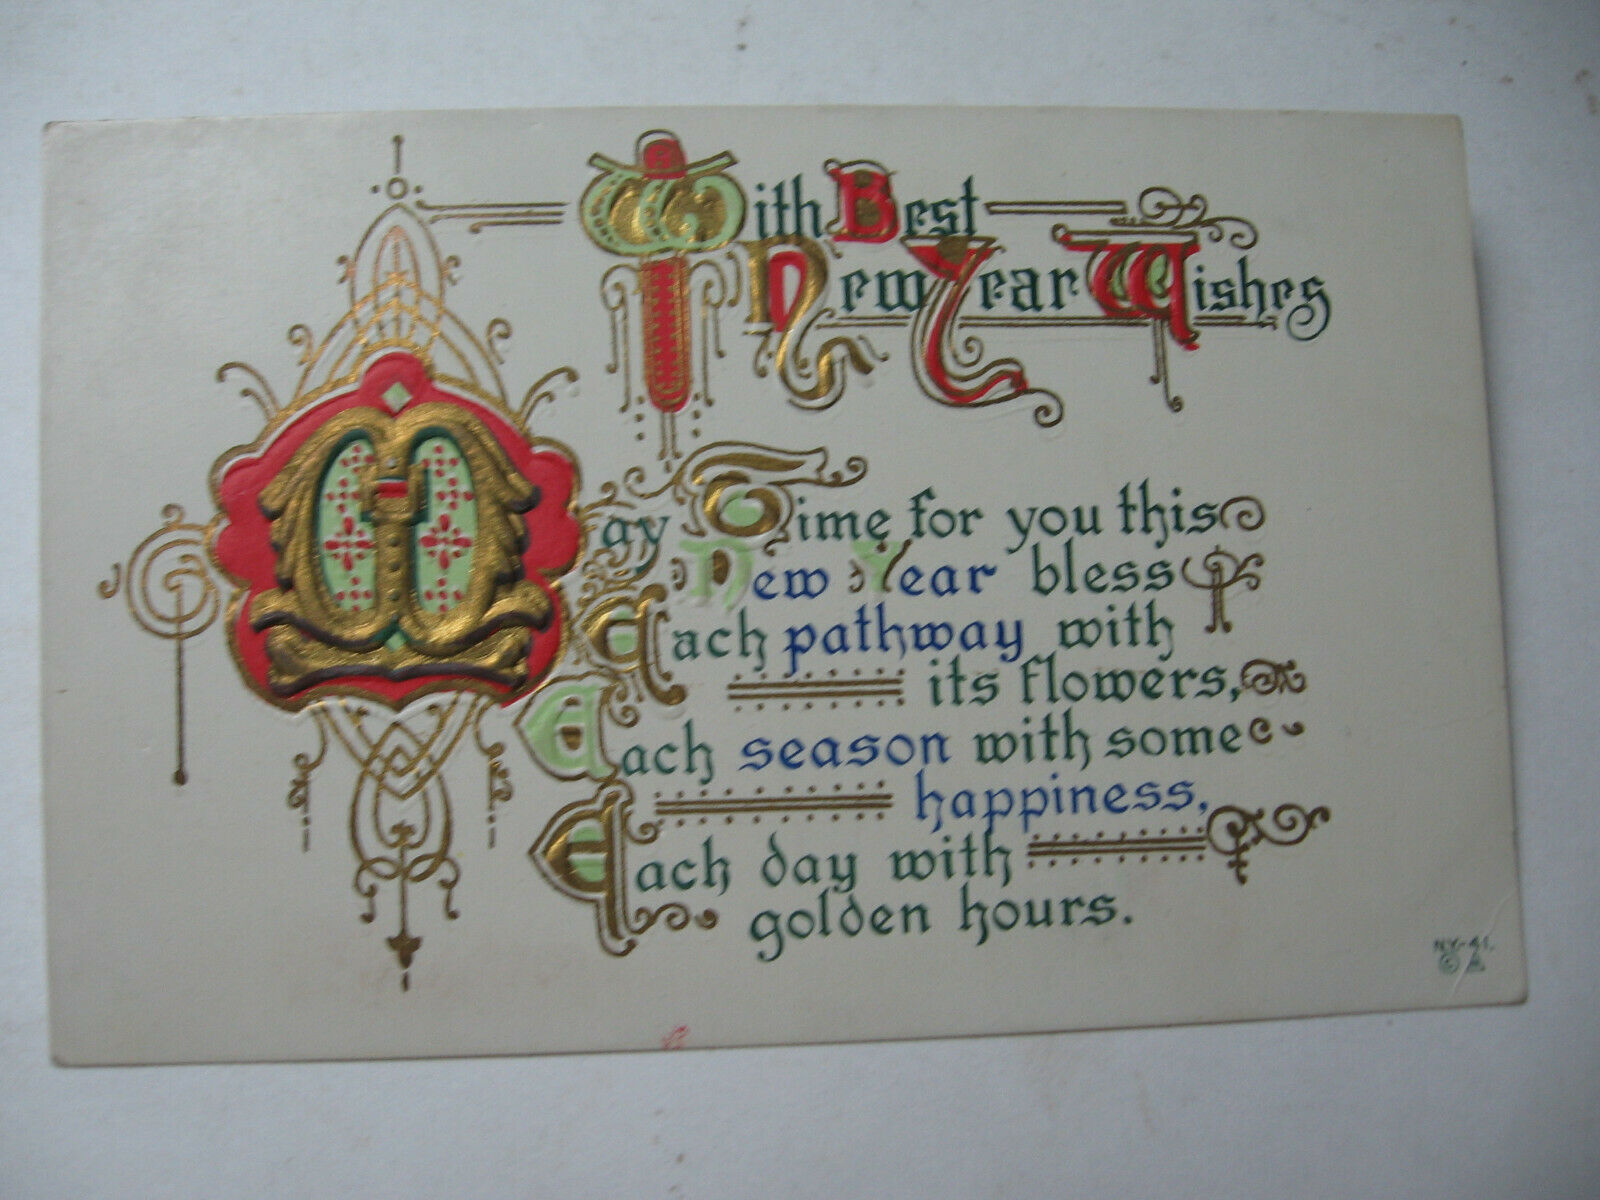 With Best
New Year Wishes
May Time for you this
New Year bless
Each pathway with
its flowers,
Each season with some
happiness,
Each day with
golden hours.
N.Y.-41.
©